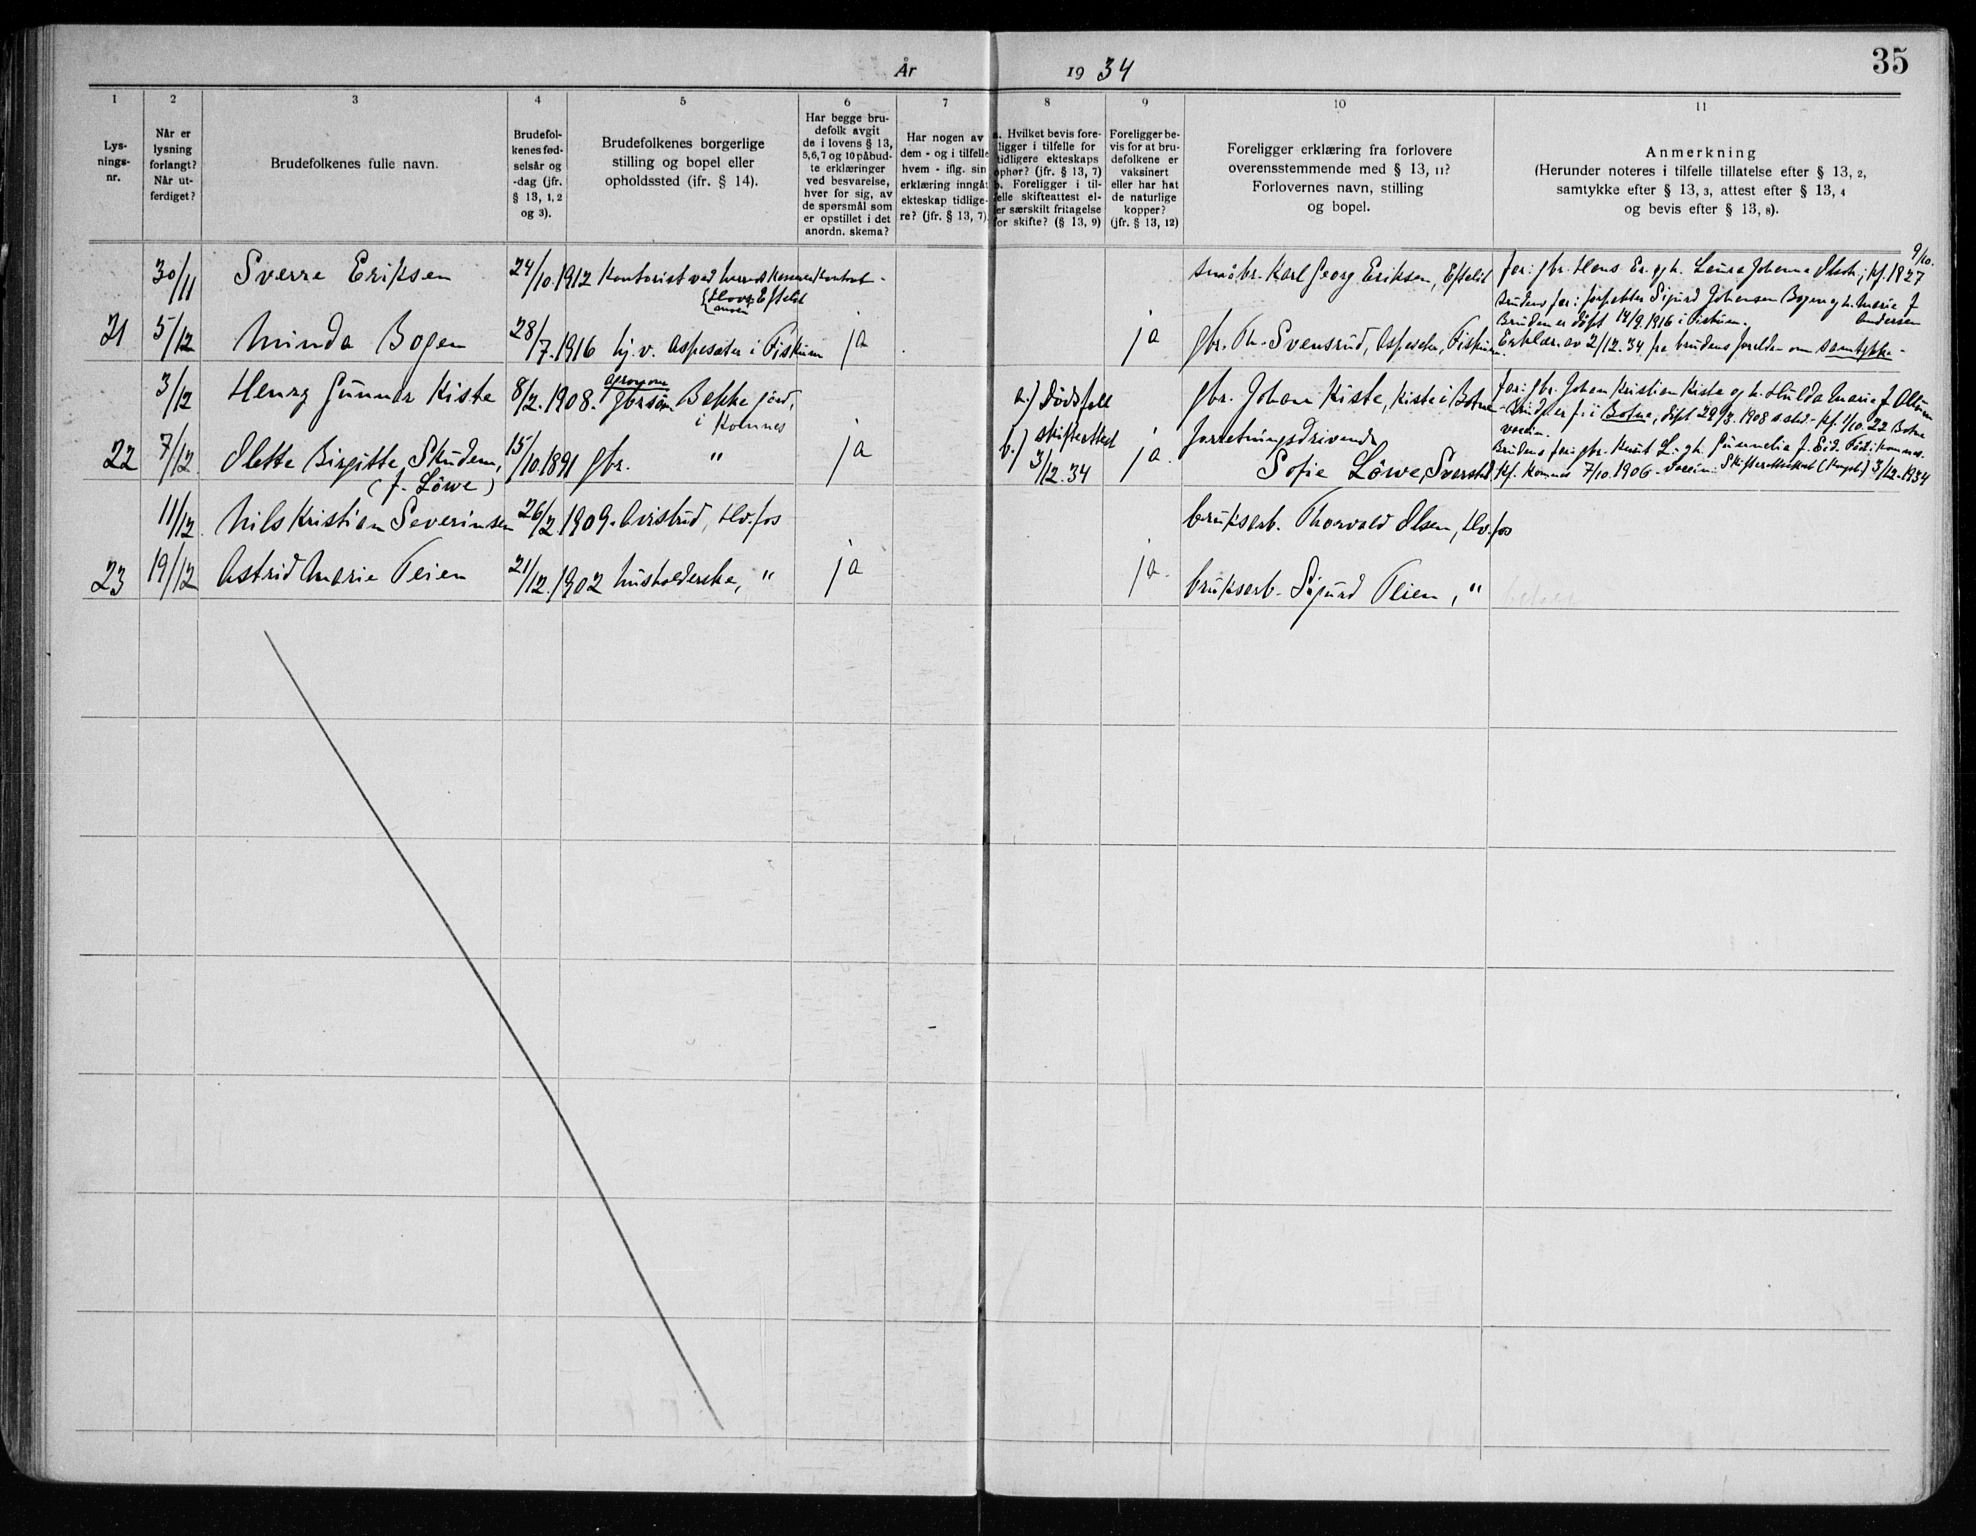 35
År 1934
1 2 3 4 5 6 7 8 9 10 11
Lys-
nings-
nr.
Når er
lysning
forlangt?
Når ut-
ferdiget?
Brudefolkenes fulle navn.
Brudefol-
kenes fød-
selsår og
-dag (jfr.
§ 13, 1, 2
og 3).
Brudefolkenes borgerlige
stilling og bopel eller
opholdssted (ifr. § 14).
Har begge bru-
defolk avgit
de i lovens § 13,
5, 6, 7 og 10 påbud-
te erklæringer
ved besvarelse,
hver for sig, av
de spørsmål som
er opstillet i det
anordn. skema?
Har nogen av
dem - og i tilfelle
hvem - iflg. sin
erklæring inngåt
ekteskap tidlige-
re? (jfr. § 13, 7)
a. Hvilket bevis fore-
ligger i tilfelle for
tidligere ekteskaps
ophør? (jfr. § 13, 7)
b. Foreligger i til-
felle skifteattest el-
er særskilt fritagelse
for skifte? (§ 13, 9)
Foreligger be-
vis for at bru-
defolkene er
vaksinert
eller har hat
de naturlige
kopper?
(jfr. § 13, 12)
Foreligger erklæring fra forlovere
overensstemmende med § 13, 11?
Forlovernes navn, stilling
og bopel.
Anmerkning
(Herunder noteres i tilfelle tillatelse efter § 13, 2,
samtykke efter § 13, 3, attest efter § 13, 4
og bevis efter § 13, 8).
30/11 Sverre Eriksen 24/10.1912 Kontorist ved herredskassekontoret -
Hovs Efteløt
småbr. Karl Georg Eriksen, Efteløt
9/10.
far: gbr. Hans Er. og h. Laura Johanna kf. 1927
Brudens far: Sigurd Johansen Bogen og h. Marie f.
Andersen
Bruden er døpt 14/9.1916 i Fiskum.
21 5/12 Minda Bogen 28/7.1916 hj. v. Aspesæter i Fiskum ja ja gbr. Th. Svensrud, Aspeseter, Fiskum
Erklær. av 2/12.34 fra brudens forelder om samtykke -
3/12 Henry Gunnar Kiste 8/2.1908. agronom
gbrsøn Bakke jord,
i Komnes
a.) Dødsfall
gbr. Johan Kiste, Kiste i Botne
far: gbr. Johan Kristian Kiste og h. Hulda Marie f.
Brudg. er f. i Botne, døpt 29/3.1908 kf. 1/10.22 Botne
vaccin.
22 7/12. Olette Birgitte Skudem, 15/10.1891 gbr. " ja
(f. Löwe)
b.) skifteattest
3/12.34 ja
forretningsdrivende
Sofie Löwe, Sverstad
Brudens far: gbr. Knut L. og h. Gunnelia f. Eid. Født i Komnes
kf. Komnes 7/10.1906 - vaccin. Skifteretsattest (Kongsb.) 3/12.1934
11/12. Nils Kristian Severinsen 26/2.1909. Avisbud, Hv.fos
bruksarb. Thorvald Olsen, Hv.fos
23 19/12 Astrid Marie Teien 21/12.1902 husholderske, " ja ja.
bruksarb. Sigurd Teien, "